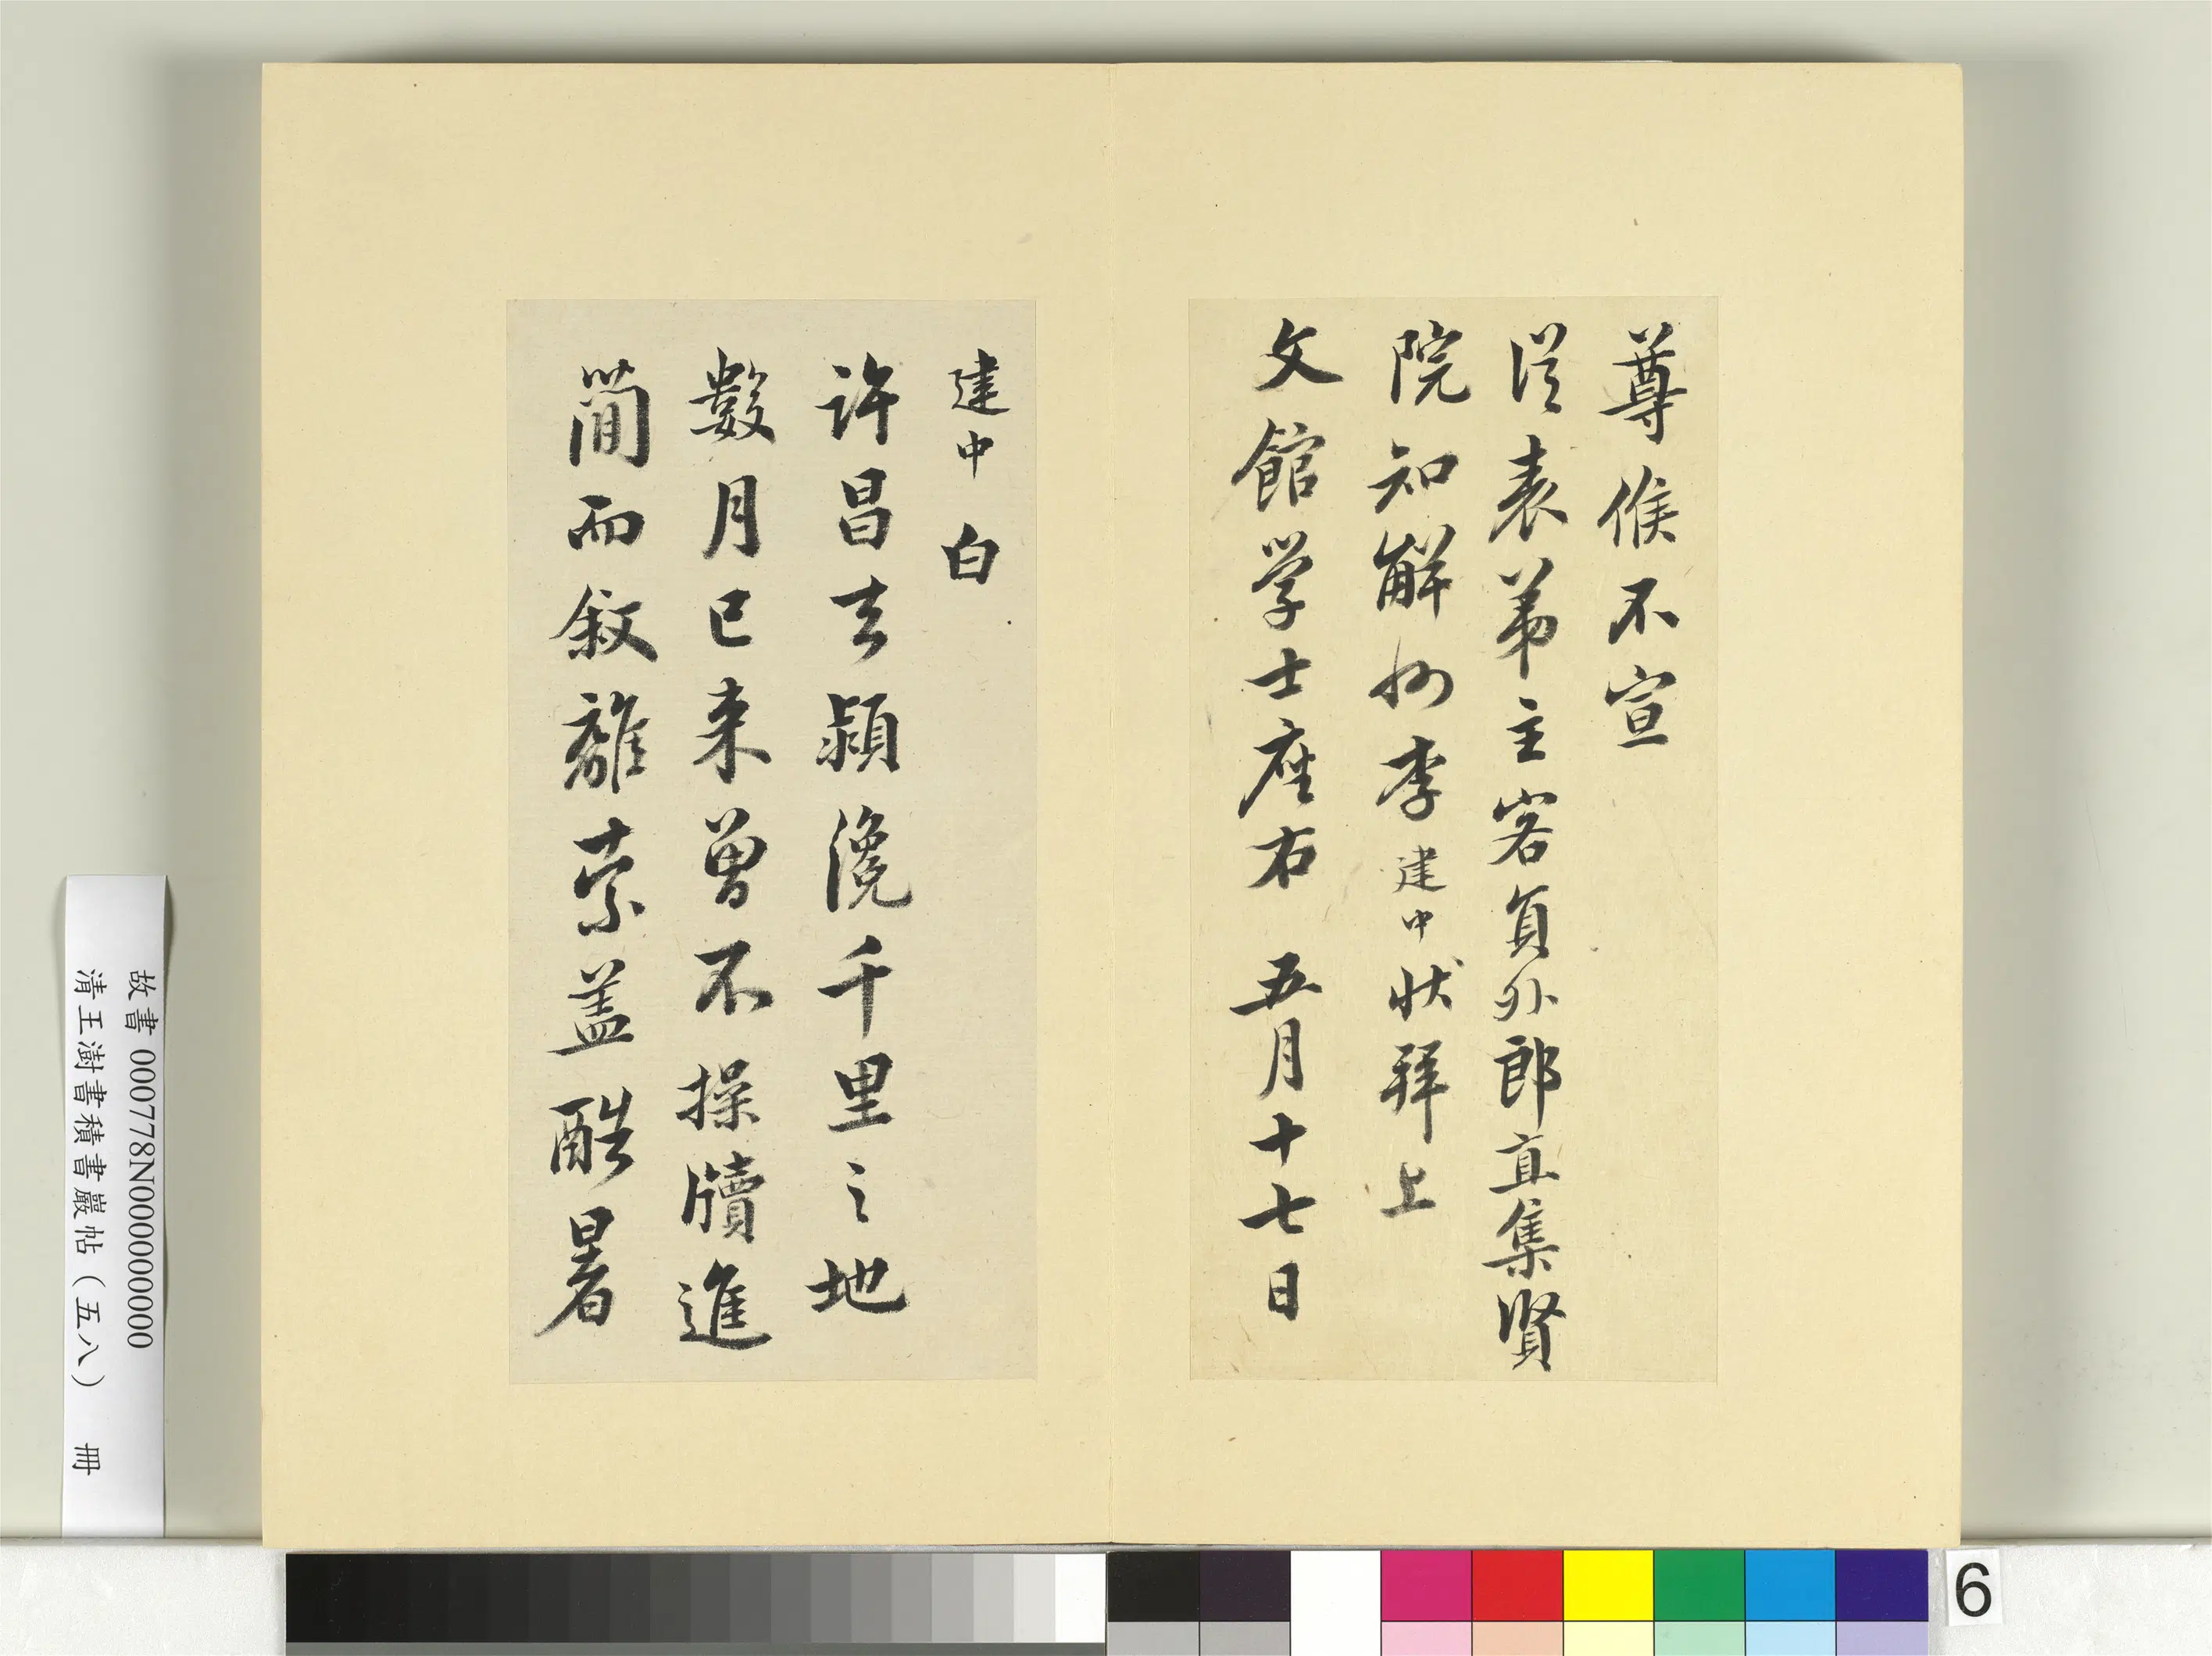 尊候不宣
從表弟主客負外郎直集賢
院知解州李建中狀拜上
文館学士座右 五月十七日
建中白
許昌去潁
千里之地
數月已来曾不操牘進
簡而叙離索盖酷暑
故書 000778N000000000
清王澍書積書巖帖(五八) 冊
6